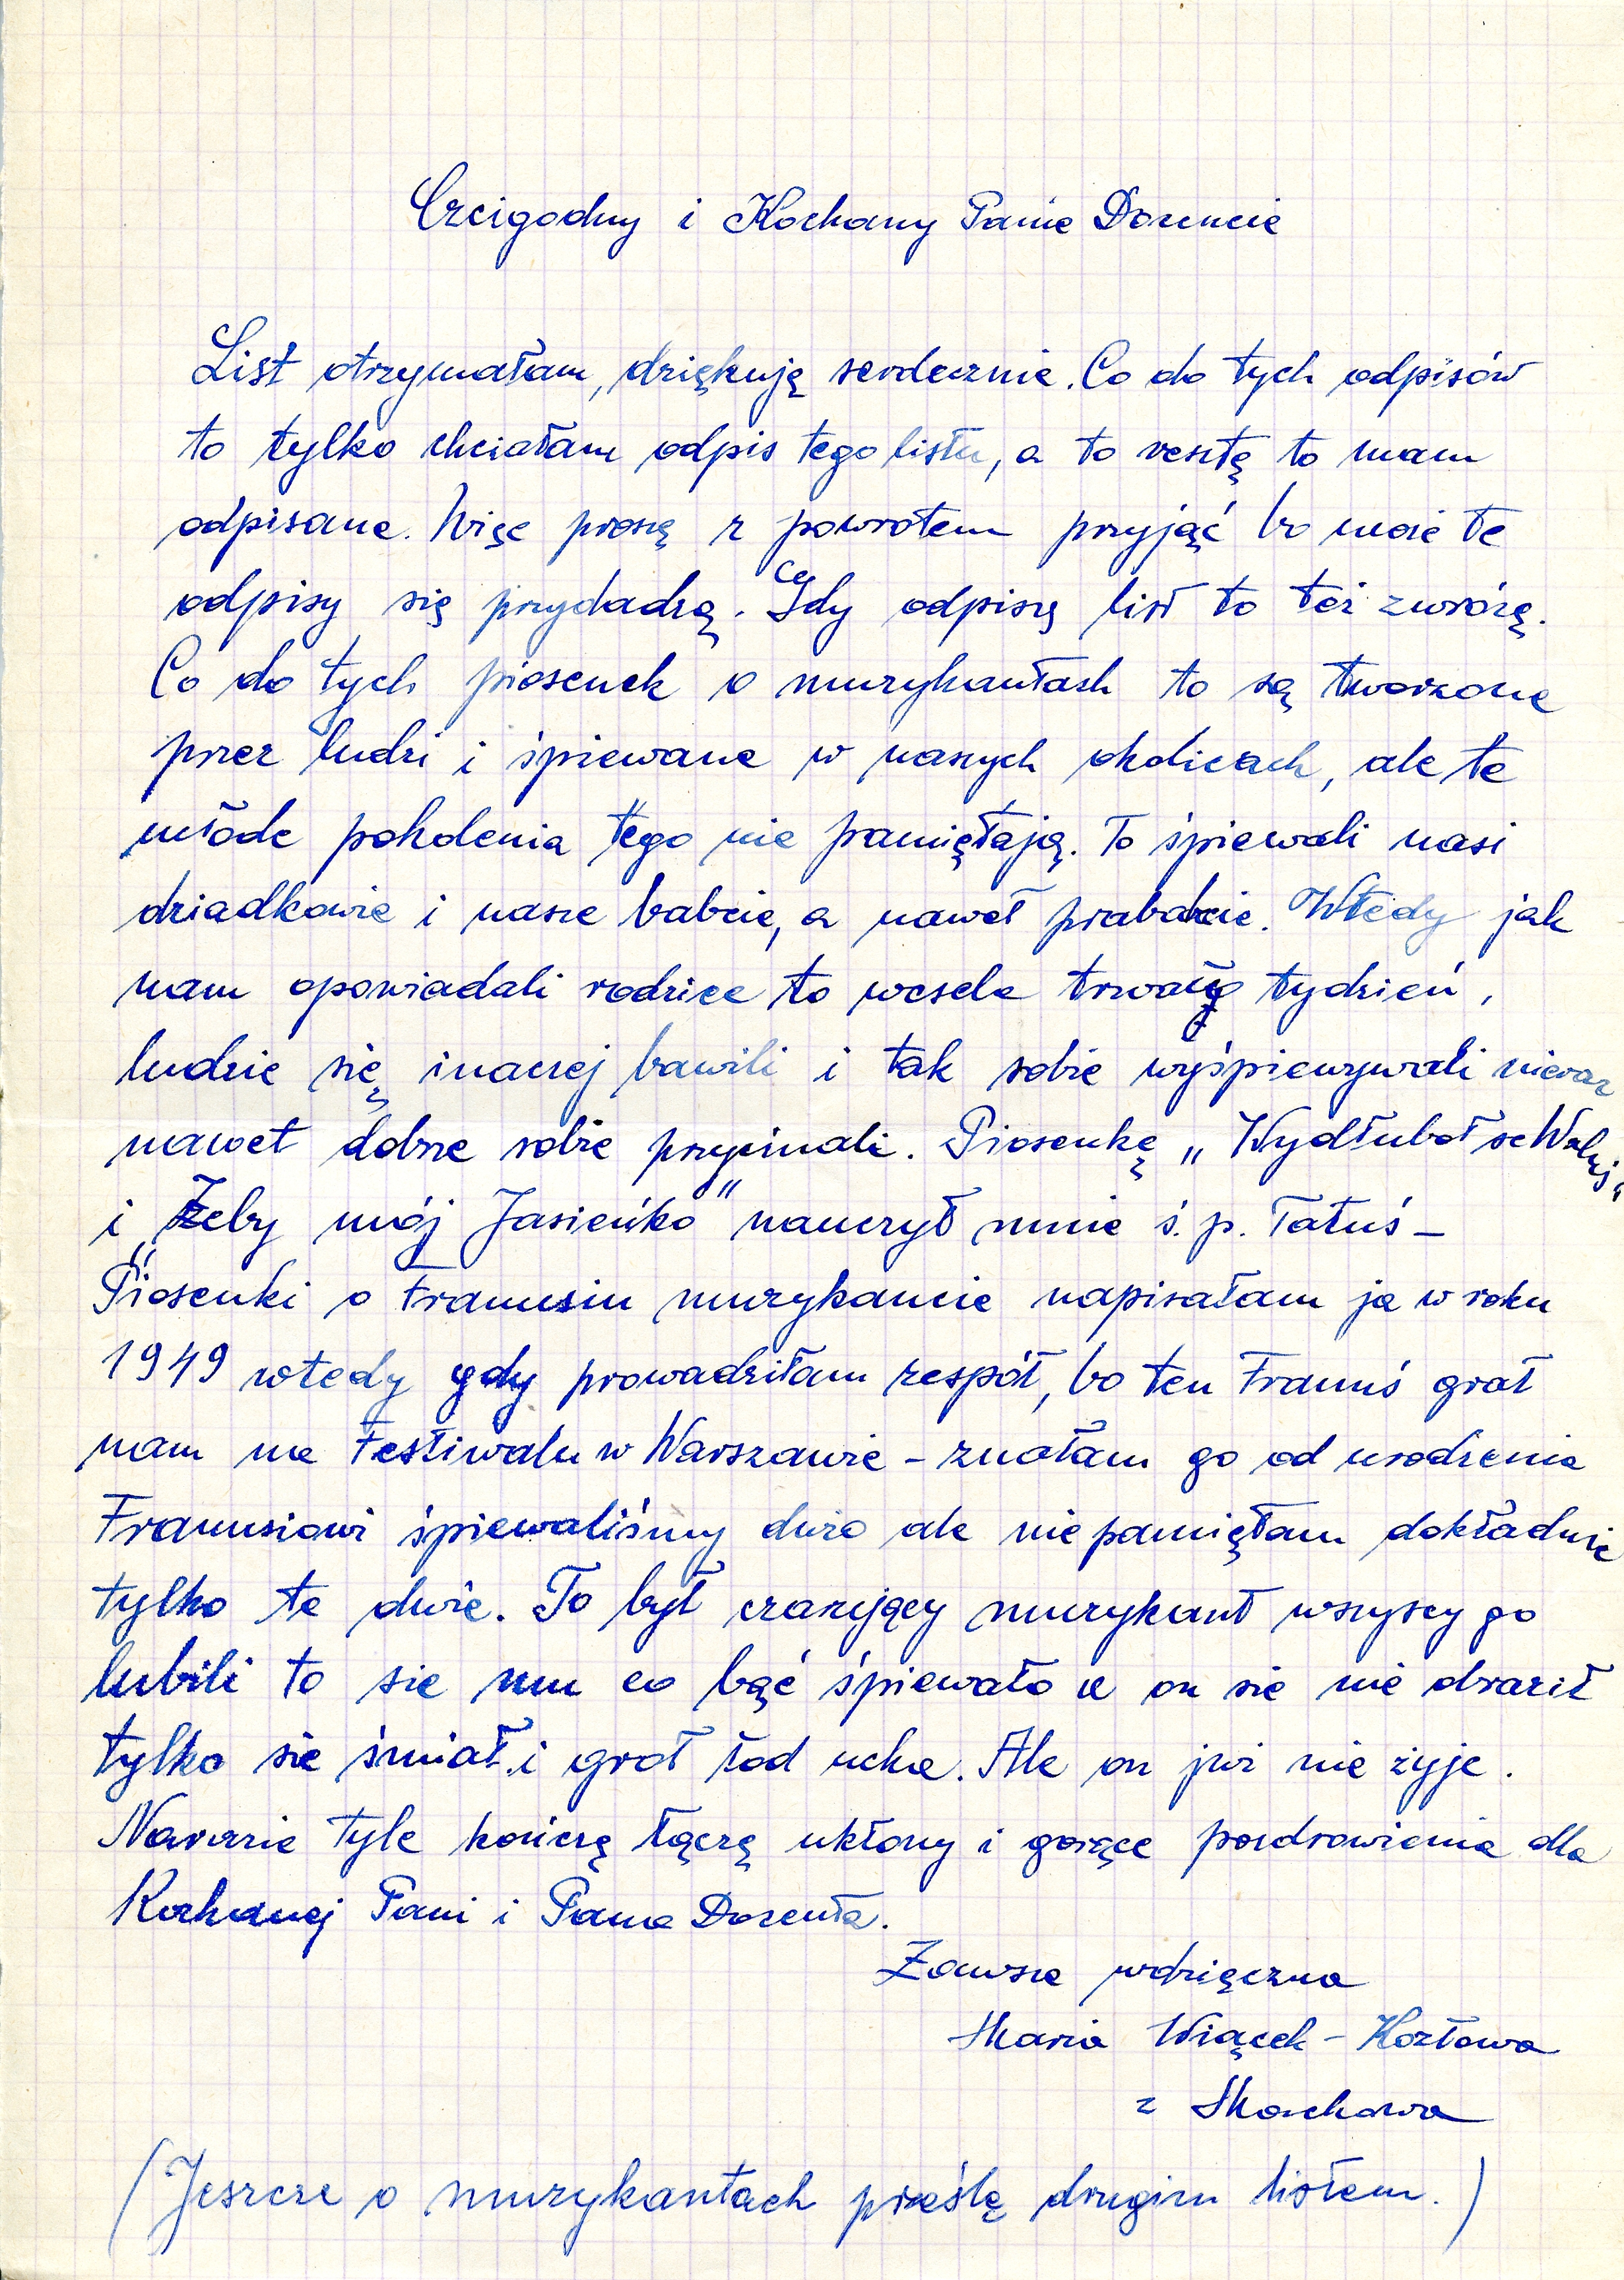 Czcigodny i Kochany Panie Docencie
List otrzymałam, dziękuję serdecznie. Co do tych odpisów
to tylko chciałam odpis tego listu, a to resztę to mam
odpisane. Więc proszę z powrotem przyjąć bo może te
odpisy się przydadzą. Gdy odpiszę list to też zwrócę.
Co do tych piosenek o muzykantach to są tworzone
przez ludzi i śpiewane w naszych okolicach, ale te
młode pokolenia tego nie pamiętają. To śpiewali nasi
dziadkowie i nasze babcie, a nawet prababcie. Wtedy jak
nam opowiadali rodzice to wesele trwały tydzień,
ludzie się inaczej bawili i tak sobie wyśpiewywali nieraz
nawet dobrze sobie przycinali. Piosenkę „Wydłuboł se Waluś"
i „Żeby mój Jasieńko" nauczył mnie ś. p. Tatuś –
Piosenki o Franusiu muzykancie napisałam ja w roku
1949 wtedy gdy prowadziłam zespół, bo ten Franuś grał
nam na Festiwalu w Warszawie – znałam go od urodzenia
Franusiowi śpiewaliśmy dużo ale nie pamiętam dokładnie
tylko te dwie. To był czarujący muzykant wszyscy go
lubili to sie mu co bąć śpiewało a on sie nie obraził
tylko sie śmiał i grał łod ucha. Ale on już nie żyje.
Narazie tyle kończę łączę ukłony i gorące pozdrowienia dla
Kochanej Pani i Pana Docenta.
Zawsze wdzięczna
Maria Wiącek – Kozłowa
z Machowa
(Jeszcze o muzykantach prześlę drugim listem.)